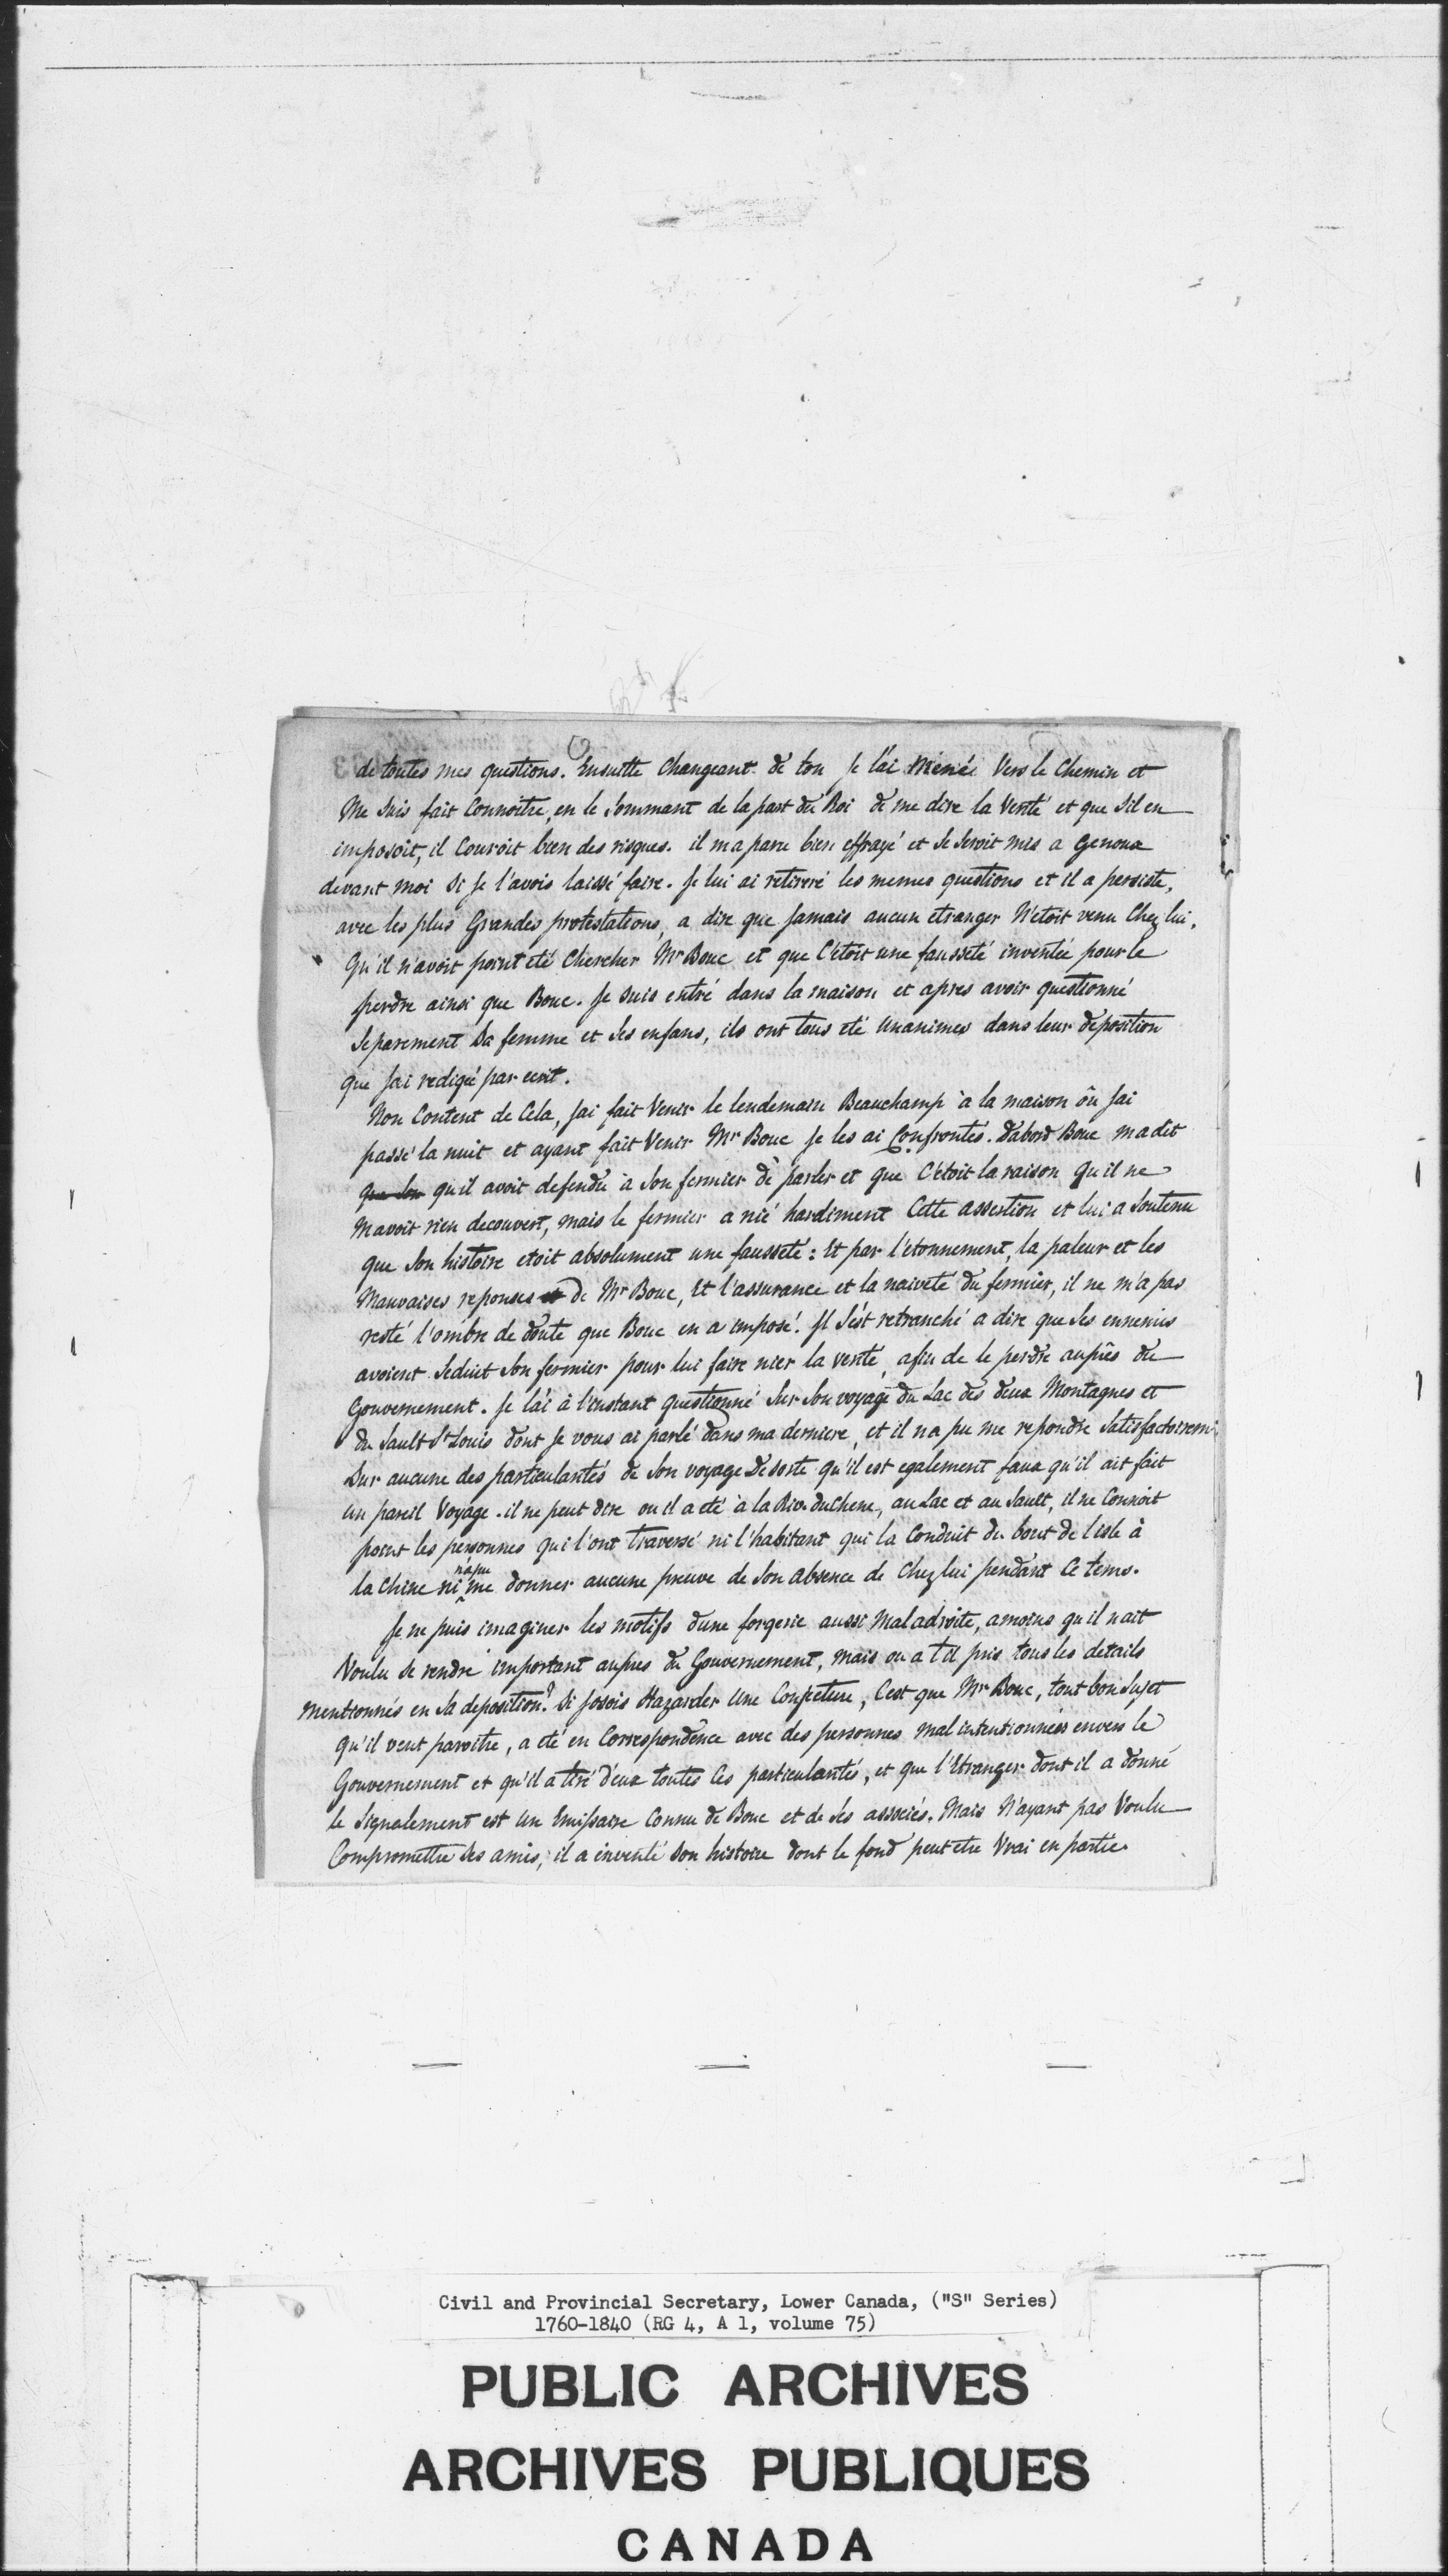 de toutes mes questions. Ensuitte Changeant de ton Je l'ai Menée Vers le Chemin et
Me Suis fait Connoitre, en le Sommant de la part du Roi de me dire la Verité et que Sil en
imposoit, il Couroit bien des risques. il ma paru bien effrayé et Se Seroit mis a Genoux
devant moi Si Je l'avois laissé faire. Je lui ai retireré les memes questions et il a persiste,
avec les plus Grandes protestations, a dire que Jamais aucun etranger N'etoit venu Chez lui,
Qu'il n'avoit point eté Chercher Mr Bouc et que C'etoit une fausseté inventée pour le
perdre ainsi que Bouc. Je suis entré dans la maison et apres avoir questionné
Separement Sa femme et Ses enfans, ils ont tous eté Unanimes dans leur deposition
que Jai redigée par ecrit.
Non Content de Cela, Jai fait Venir le lendemain Beauchamp à la maison où Jai
passé la nuit et ayant fait Venir Mr Bouc Je les ai Confrontés. Dabord Bouc madit
que Son quil avoit defendu à Son fermier de parler et que C'etoit la raison Quil ne
Mavoit rien decouvert, mais le fermier a nié hardiment Cette assertion et lui a Soutenu
que Son histoire etoit absolument une fausseté: Et par l'etonnement, la paleur et les
Mauvaises reponses de Mr Bouc, Et l'assurance et la naiveté du fermier, il ne m'a pas
resté l'ombre de doute que Bouc en a imposé. Il S'est retranché a dire que Ses ennemis
avoient Seduit Son fermier pour lui faire nier la verité, afin de le perdre auprês du
Gouvernement. Je l'ai à l'instant Questionné Sur Son voyage du Lac des deux Montagnes et
du Sault St Louis dont Je vous ai parlé dans ma derniere, et il na pu me repondre Satisfactoirem:
Sur aucune des particularités de Son voyage De sorte qu'il est egalement faux qu'il ait fait
un pareil Voyage. il ne peut dire ou il a eté à la Riv. du Chene, au Lac et au Sault, il ne Connoit
point les personnes qui l'ont Traversé ni l'habitant qui la Conduit du bout de lisle à
la Chine ni n'a pu me donner aucune preuve de Son absence de Chez lui pendant Ce tems.
Je ne puis imaginer les motifs dune forgerie aussi Maladroite, amoins qu'il nait
Voulu Se rendre important aupres du Gouvernement, Mais ou a t'il pris tous les details
mentionnés en Sa deposition? Si Josois Hazarder Une Conjecture, Cest que Mr Bouc, tout bon Sujet
qu'il veut paroitre, a eté en Correspondence avec des personnes mal intentionnées envers le
Gouvernement et qu'il a tiré d'eux toutes Ces particularités, et que l'Etranger dont il a donné
le Signalement est Un Emissaire Connu de Bouc et de Ses associés. Mais N'ayant pas Voulu
Compromettre Ses amis, il a inventé Son histoire dont le fond peut etre Vrai en partie.
Civil and Provincial Secretary, Lower Canada, ("S" Series)
1760-1840 (RG 4, A 1, volume 75)
PUBLIC ARCHIVES
ARCHIVES PUBLIQUES
CANADA